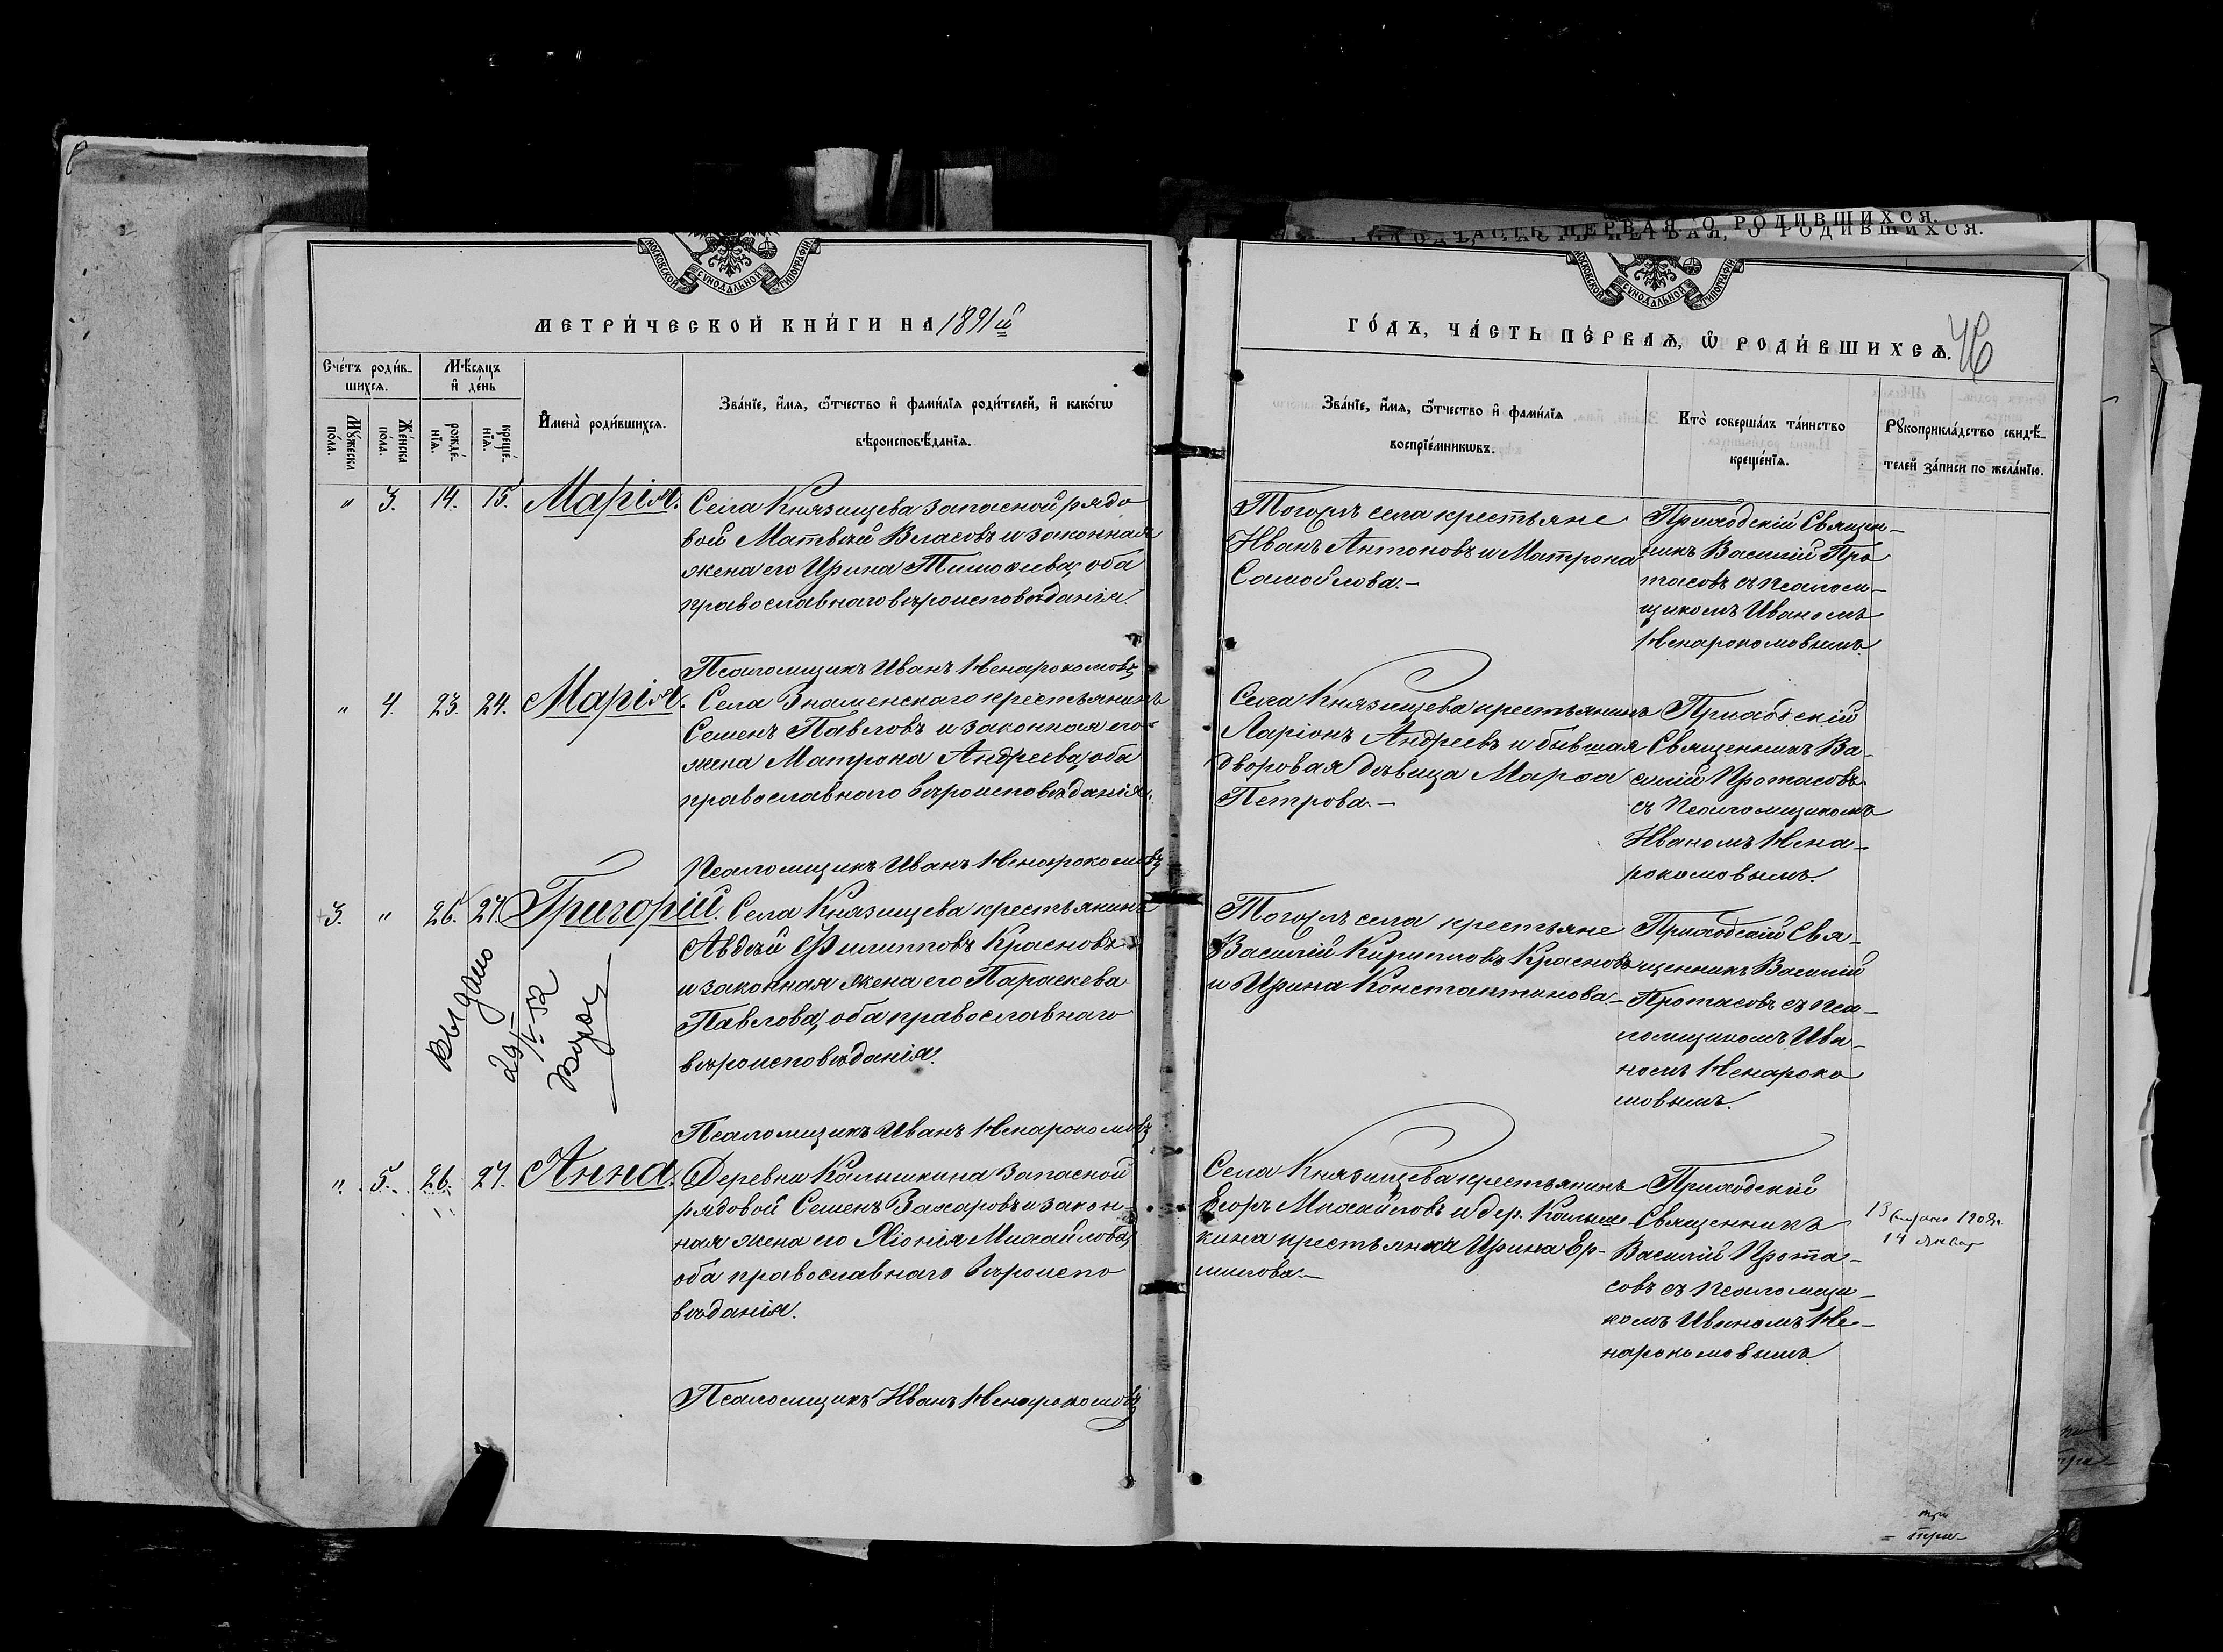 ЧАСТЬ ПЕРВАЯ, О РОДИВШИХСЯ.
МОСКОВСКОЙ СѴНОДАЛЬНОЙ ТИПОГРАФІИ
МЕТРИ́ЧЕСКОЙ КНИ́ГИ НА 1891й
Сче́тъ роди́в-
шихся.
Мѣ́сяцъ
и҆ де́нь
Мꙋ́жеска
по́ла.
Же́нска
по́ла.
рожде́-
нїѧ.
креще́-
нїѧ.
И҆мена̀ роди́вшихся.
Зва́нїе, и҆́мя, ѻ҆́тчество и҆ фами́лїя роди́телей, и҆ како́гѡ
вѣроисповѣ́данїя.
" 3. 14. 15. Марія.
Села Князищева запасной рядо
вой Матвѣй Власовъ и законная
жена его Ирина Тимоѳеева, оба
православнаго вѣроисповѣданія.
Псаломщикъ Иванъ Ненарокомовъ
" 4. 23. 24. Марія.
Села Знаменскаго крестьянинъ
Семенъ Павловъ и законная его
жена Матрона Андреева, оба
православнаго вѣроисповѣданія.
Псаломщикъ Иванъ Ненарокомовъ
3. " 26. 27. Григорій.
Села Князищева крестьянинъ
Авдѣй Филипповъ Красновъ
и законная жена его Параскева
Павлова, оба православнаго
вѣроисповѣданія.
Выдано
29/V-52
Псаломщикъ Иванъ Ненарокомовъ
" 5. 26. 27. Анна.
Деревни Калышкина запасной
рядовой Семенъ Захаровъ и закон-
ная жена его Хіонія Михайлова,
оба православнаго вѣроиспо
вѣданія.
Псаломщикъ Иванъ Ненарокомовъ
МОСКОВСКОЙ СѴНОДАЛЬНОЙ ТИПОГРАФІИ
ГО́ДЪ, ЧА́СТЬ ПЕ́РВАѦ, Ѡ҆ РОДИ́ВШИХСѦ.
46
Зва́нїе, и҆́мя, ѻ҆́тчество и҆ фами́лїя
воспрїе́мникѡвъ.
Кто̀ соверша́лъ та́инство
креще́нїя.
Рꙋкоприкла́дство свидѣ́-
телей за́писи по жела́нїю.
Тогожъ села крестьяне
Иванъ Антоновъ и Матрона
Самойлова.-
Приходскій Священ-
никъ Василій Про
тасовъ съ псалом-
щикомъ Иваномъ
Ненарокомовымъ.
Села Князищева крестьянинъ
Ларіонъ Андреевъ и бывшая
дворовая дѣвица Марѳа
Петрова.-
Приходскій
Священникъ Ва-
силій Протасовъ
съ Псаломщикомъ
Иваномъ Нена-
рокомовымъ.
Тогожъ села крестьяне
Василій Кирилловъ Красновъ
и Ирина Константинова.-
Приходскій Свя-
щенникъ Василій
Протасовъ съ пса-
ломщикомъ Ива-
номъ Ненароко
мовымъ.
Села Князищева крестьянинъ
Егоръ Михайловъ и дер. Калыш-
кина крестьянка Ирина Ер-
милова.-
Приходскій
Священникъ
Василій Прота-
совъ съ псаломщи-
комъ Иваномъ Не-
нарокомовымъ.